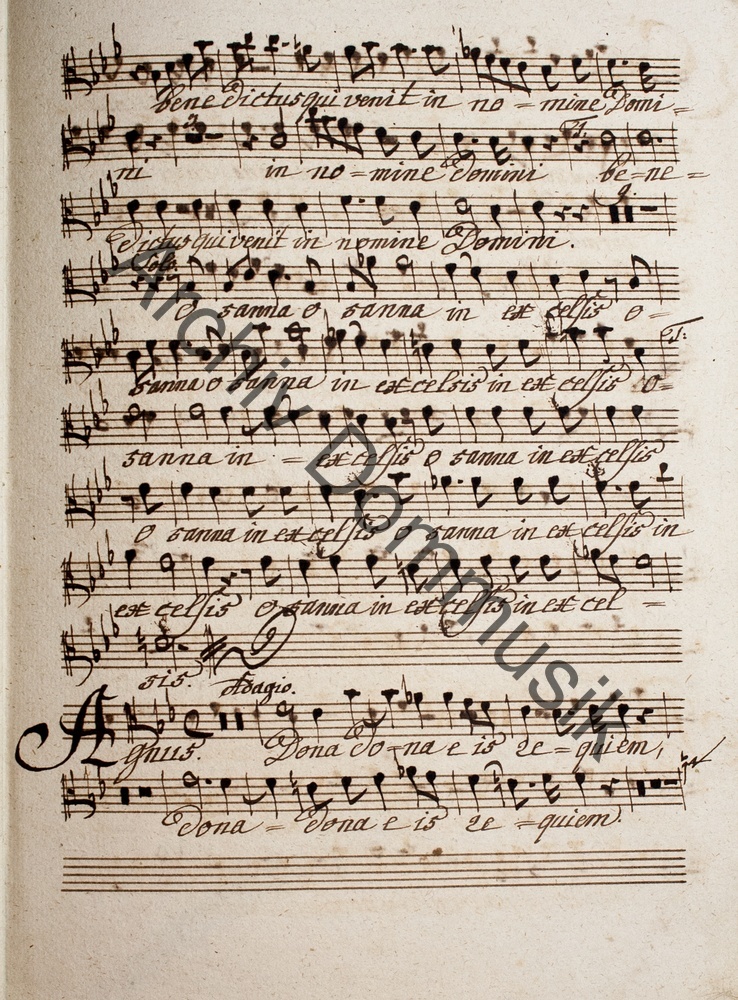 benedictus qui venit in no = mine Domi =
ni in no = mine Domini be = ne =
dictus qui venit in nomine Domini.
Solo.
O sanna o sanna in excelsis o =
sanna o sanna in excelsis in excelsis o =
sanna in = excelsis o sanna in excelsis
o sanna in excelsis o sanna in excelsis in
excelsis o sanna in excelsis in excel =
sis.
Adagio.
Agnus. Dona do = na eis re = quiem,
dona = dona eis re = quiem.
Archiv Dommusik